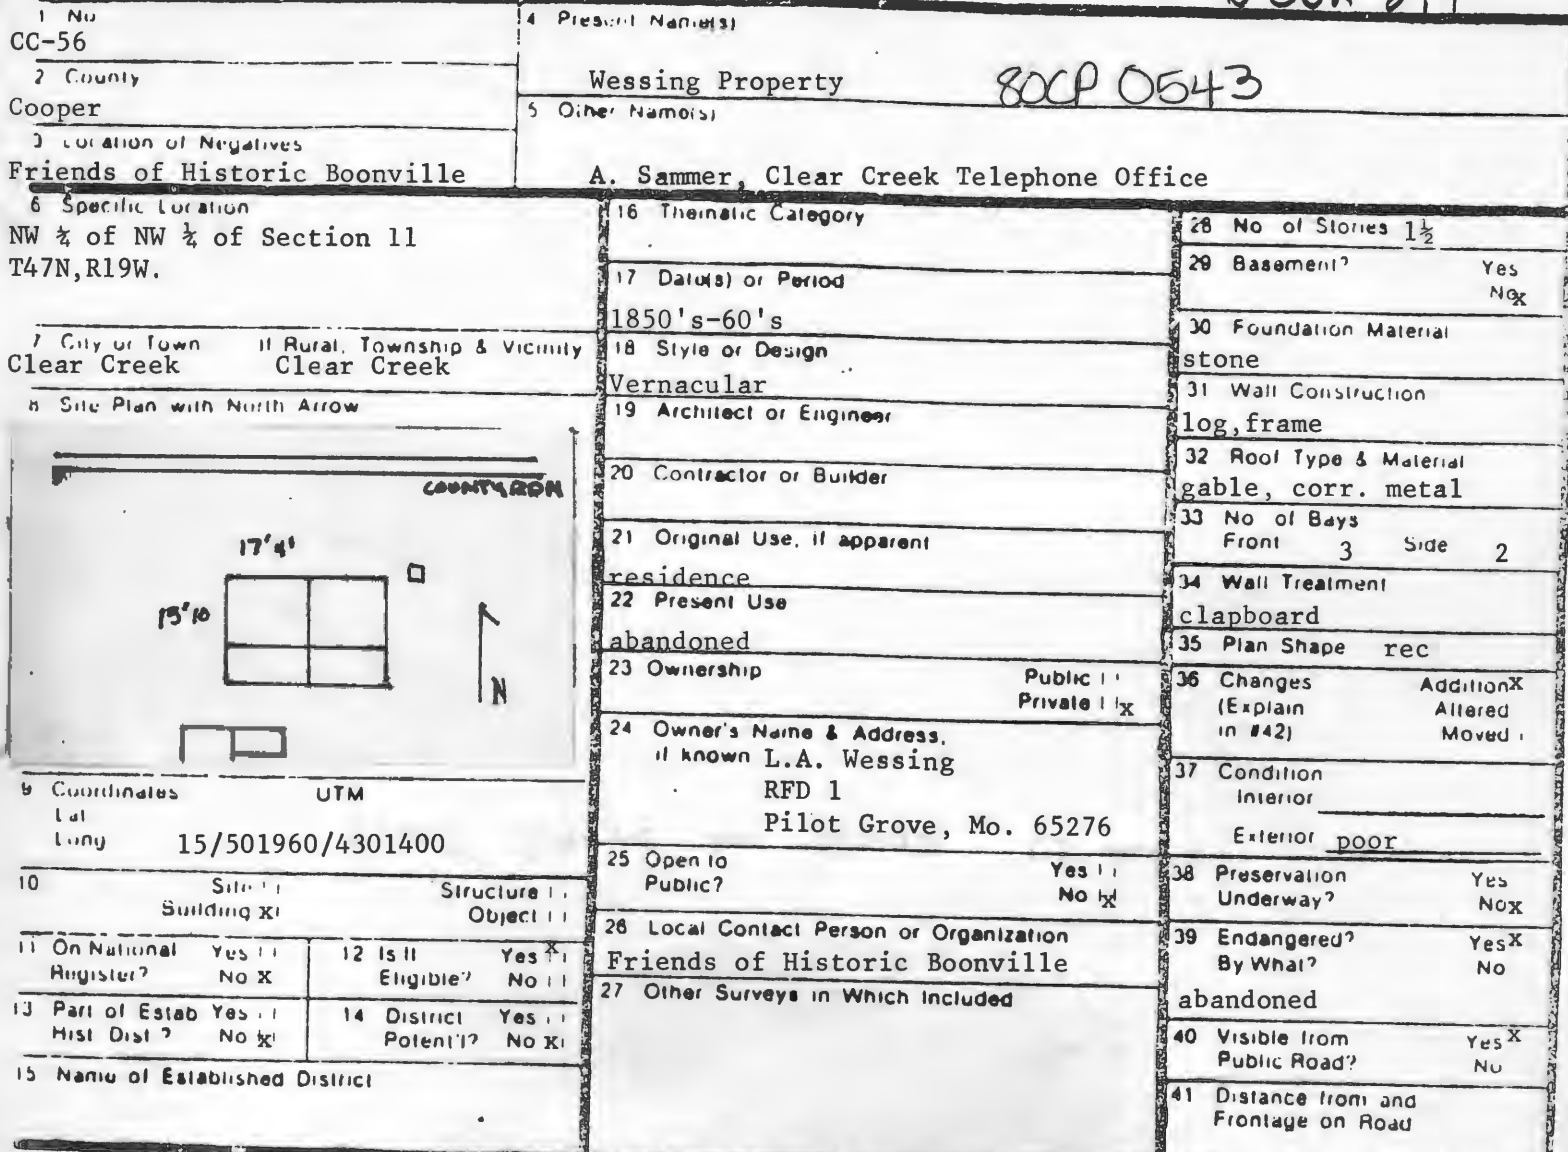 1 No
CC-56
2 County
Cooper
3 Location of Negatives
Friends of Historic Boonville
4 Present Name(s)
Wessing Property
80CP 0543
5 Other Name(s)
A. Sammer, Clear Creek Telephone Office
6 Specific Location
NW ¼ of NW ¼ of Section 11
T47N,R19W.
7 City or Town If Rural, Township & Vicinity
Clear Creek Clear Creek
8 Site Plan with North Arrow
COUNTY RD
17'4"
15'10
N
9 Coordinates UTM
Lat
Long 15/501960/4301400
10 Site Structure
Building X Object
11 On National Yes
Register? No X
12 Is It Yes X
Eligible? No
13 Part of Estab Yes
Hist Dist? No X
14 District Yes
Potent'l? No X
15 Name of Established District
16 Thematic Category
17 Date(s) or Period
1850's-60's
18 Style or Design
Vernacular
19 Architect or Engineer
20 Contractor or Builder
21 Original Use, if apparent
residence
22 Present Use
abandoned
23 Ownership Public
Private X
24 Owner's Name & Address,
if known L.A. Wessing
RFD 1
Pilot Grove, Mo. 65276
25 Open to Yes
Public? No X
26 Local Contact Person or Organization
Friends of Historic Boonville
27 Other Surveys in Which Included
28 No of Stories 1½
29 Basement? Yes
No X
30 Foundation Material
stone
31 Wall Construction
log,frame
32 Roof Type & Material
gable, corr. metal
33 No of Bays
Front 3 Side 2
34 Wall Treatment
clapboard
35 Plan Shape rec
36 Changes Addition X
(Explain Altered
in #42) Moved
37 Condition
Interior
Exterior poor
38 Preservation Yes
Underway? No X
39 Endangered? Yes X
By What? No
abandoned
40 Visible from Yes X
Public Road? No
41 Distance from and
Frontage on Road